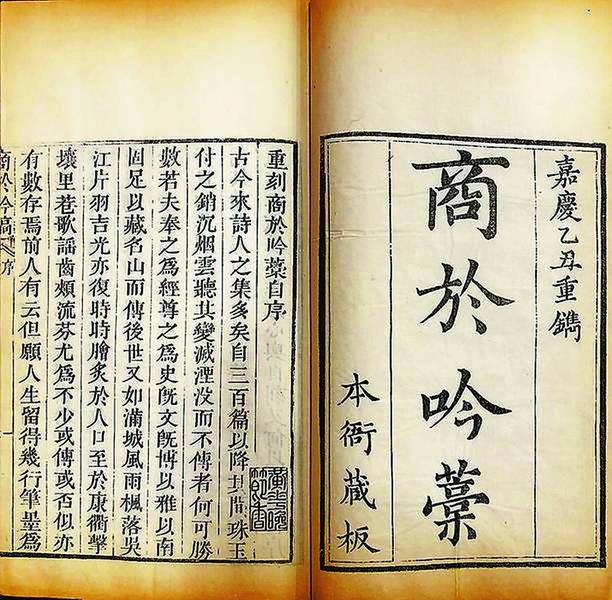 嘉慶乙丑重鐫
商於吟藁
本衙藏板
重刻商於吟藁自序
古今來詩人之集多矣自三百篇以降其間珠玉
付之銷沉烟雲聽其變滅湮没而不傳者何可勝
數若夫奉之爲經尊之爲史旣文旣博以雅以南
固足以藏名山而傳後世又如滿城風雨楓落吳
江片羽吉光亦復時時膾炙於人口至於康衢擊
壤里巷歌謡齒頰流芬尤爲不少或傳或否似亦
有數存焉前人有云但願人生留得幾行筆墨爲
商於吟稿 序 一